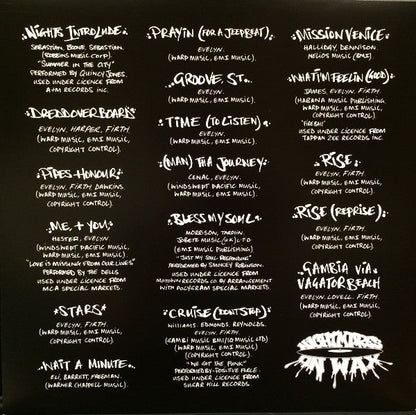 NIGHTS INTROLUDE
SEBASTIAN, BOONE, SEBASTIAN.
(ROBBINS MUSIC CORP)
"SUMMER IN THE CITY"
PERFORMED BY QUINCY JONES.
USED UNDER LICENCE FROM
A+M RECORDS INC.
DREDDOVERBOARD
EVELYN, HARPER, FIRTH.
(WARP MUSIC, EMI MUSIC,
COPYRIGHT CONTROL).
PIPES HONOUR
EVELYN, FIRTH, DAWKINS.
(WARP MUSIC, EMI MUSIC,
COPYRIGHT CONTROL).
ME + YOU
HESTER, EVELYN.
(WINDSWEPT PACIFIC MUSIC,
WARP MUSIC, EMI MUSIC).
"LOVE IS MISSING FROM OUR LIVES"
PERFORMED BY THE DELLS.
USED UNDER LICENCE FROM
MCA SPECIAL MARKETS.
STARS
EVELYN, FIRTH.
(WARP MUSIC, EMI MUSIC,
COPYRIGHT CONTROL).
WAIT A MINUTE
ELI, BARRETT, FREEMAN.
(WARNER CHAPPELL MUSIC).
PRAYIN (FOR A JEEPBEAT)
EVELYN.
(WARP MUSIC, EMI MUSIC).
GROOVE ST.
EVELYN.
(WARP MUSIC, EMI MUSIC).
TIME (TO LISTEN)
EVELYN.
(WARP MUSIC, EMI MUSIC).
(MAN) THA JOURNEY
CENAC, EVELYN.
(WINDSWEPT PACIFIC MUSIC,
WARP MUSIC, EMI MUSIC).
BLESS MY SOUL
MORRISON, TARPLIN.
JOBETE MUSIC (UK) LTD
(EMI MUSIC PUBLISHING)
"JUST MY SOUL RESPONDING"
PERFORMED BY SMOKEY ROBINSON.
USED UNDER LICENCE FROM
MOTOWN RECORDS CO BY ARRANGEMENT
WITH POLYGRAM SPECIAL MARKETS.
CRUISE (DON'T STOP)
WILLIAMS, EDMONDS, REYNOLDS,
EVELYN, FIRTH.
(CAMBI MUSIC BMI/10 MUSIC LTD)
(WARP MUSIC, EMI MUSIC,
COPYRIGHT CONTROL).
"WE GOT THE FUNK"
PERFORMED BY POSITIVE FORCE.
USED UNDER LICENCE FROM
SUGAR HILL RECORDS.
MISSION VENICE
HALLIDAY, DENNISON.
HELIOS MUSIC (BMI)
WHAT I'M FEELIN (GOOD)
JAMES, EVELYN, FIRTH.
(HARANA MUSIC PUBLISHING,
WARP MUSIC, EMI MUSIC,
COPYRIGHT CONTROL).
USED UNDER LICENCE FROM
TAPPAN ZEE RECORDS INC.
RISE
EVELYN, FIRTH.
(WARP MUSIC, EMI MUSIC,
COPYRIGHT CONTROL).
RISE (REPRISE)
EVELYN, FIRTH.
(WARP MUSIC, EMI MUSIC,
COPYRIGHT CONTROL).
GAMBIA VIA
VAGATOR BEACH
EVELYN, LOVELL, FIRTH.
(WARP MUSIC, EMI MUSIC,
COPYRIGHT CONTROL).
NIGHTMARES
ON WAX